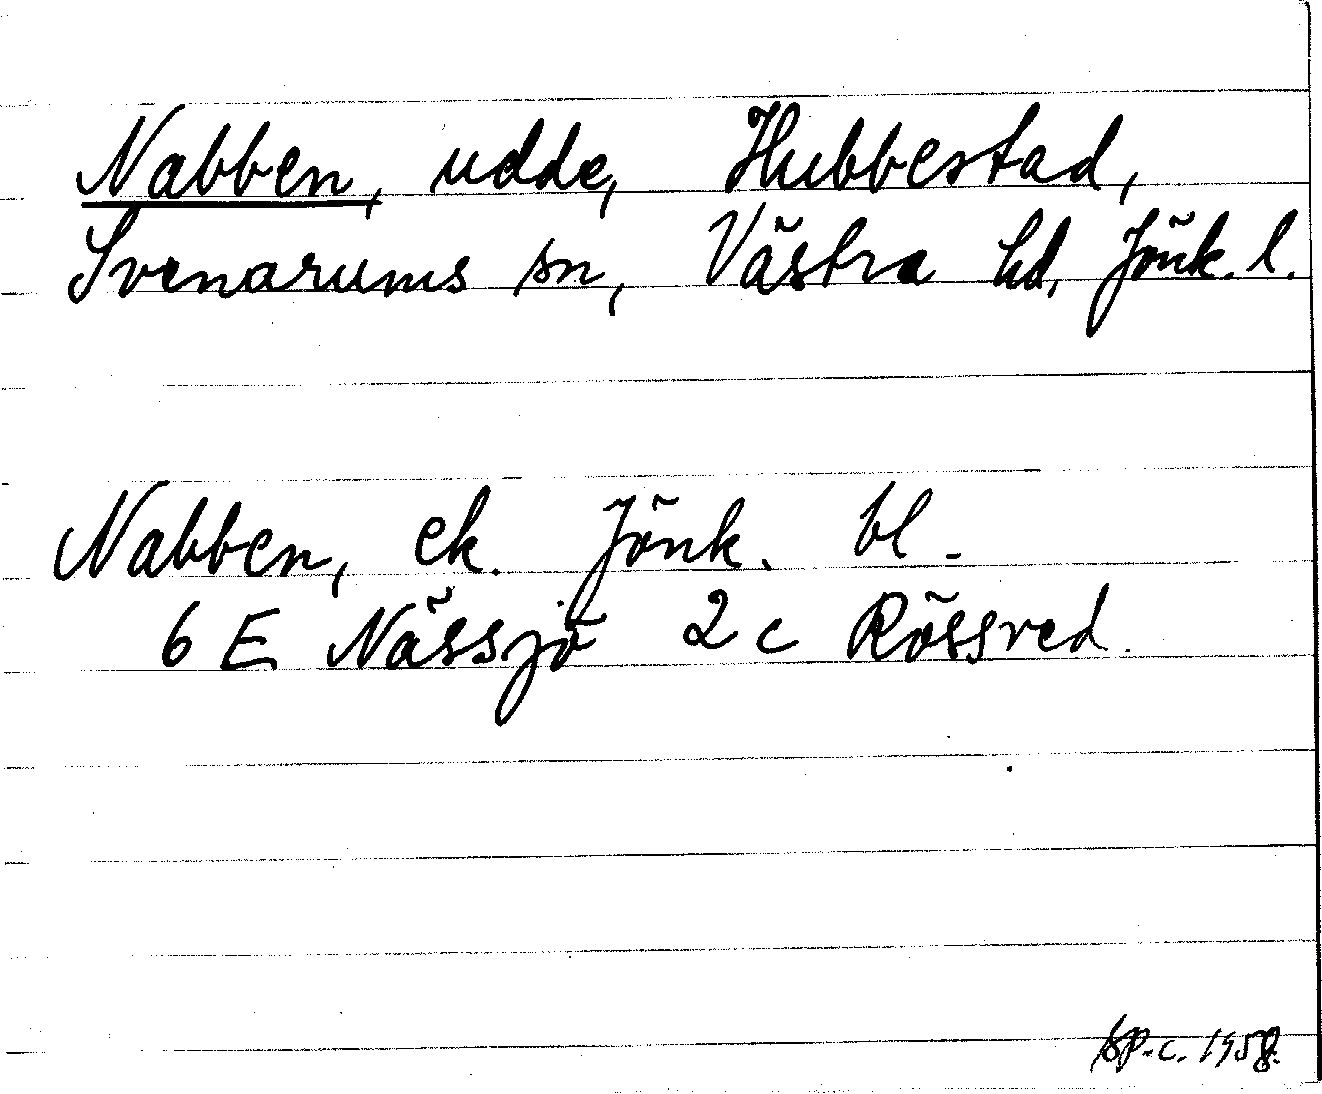 Nabben, udde, Hubbestad,
Svenarums sn, Västra hd, Jönk. l.
Nabben, ek. Jönk. bl.
6 E Nässjö 2 c Rössred.
1958.